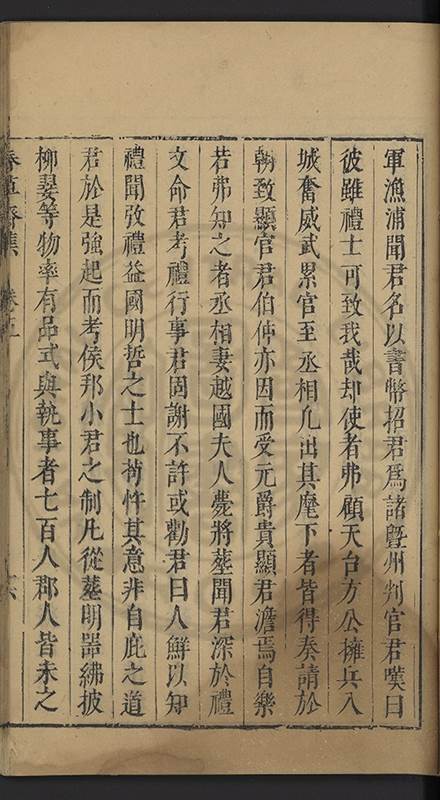 軍漁浦聞君名以書幣招君爲諸曁州判官君嘆曰
彼雖禮士可致我哉却使者弗顧天台方公擁兵入
城奮威武累官至丞相凡出其麾下者皆得奏請於
朝致顯官君伯仲亦因而受元爵貴顯君澹焉自樂
若弗知之者丞相妻越國夫人薨將塟聞君深於禮
文命君考禮行事君固謝不許或勸君曰人鮮以知
禮聞攷禮益國明哲之士也茍忤其意非自庇之道
君於是強起而考侯邦小君之制凡從塟明噐紼披
柳翣等物率有品式與執事者七百人郡人皆未之
卷五